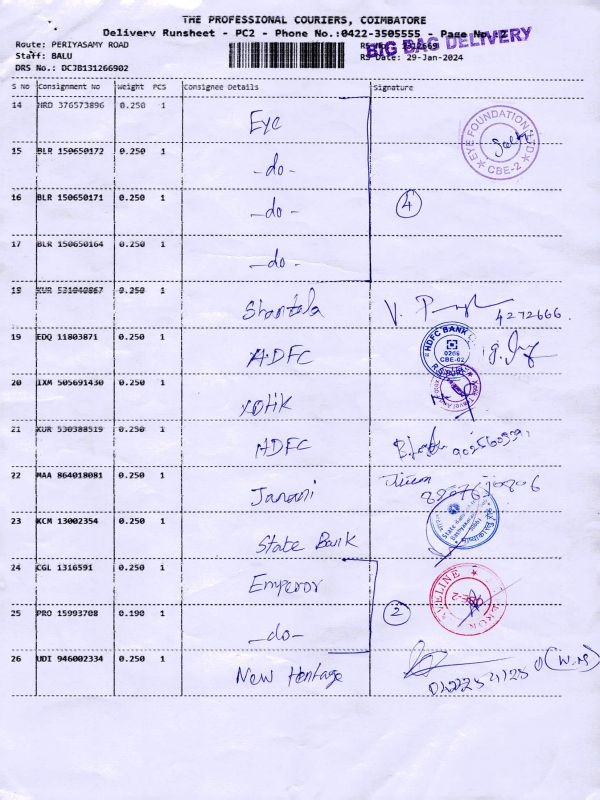 THE PROFESSIONAL COURIERS, COIMBATORE
Delivery Runsheet - PC2 - Phone No.:0422-3505555 - Page No.:2
BIG BAG DELIVERY
Route: PERIYASAMY ROAD
Staff: BALU
RS Date: 29-Jan-2024
DRS No.: DCJB131266902
S No Consignment No Weight PCS Consignee Details Signature
14 NRD 376573896 0.250 1 Eye
EYE FOUNDATION LTD CBE-2
15 BLR 150650172 0.250 1 -do-
16 BLR 150650171 0.250 1 -do- 4
17 BLR 150650164 0.250 1 -do-
0.250 1 4272666.
19 EDQ 11803871 0.250 1 HDFC
HDFC BANK 0269 CBE-02
20 IXM 505691430 0.250 1
21 KUR 530388519 0.250 1 HDFC
22 MAA 864018081 0.250 1 Janani
23 KCM 13002354 0.250 1 State Bank
24 CGL 1316591 0.250 1 Emperor
CBE-2
25 PRO 15993708 0.190 1 -do- 2
26 UDI 946002334 0.250 1 New Heritage